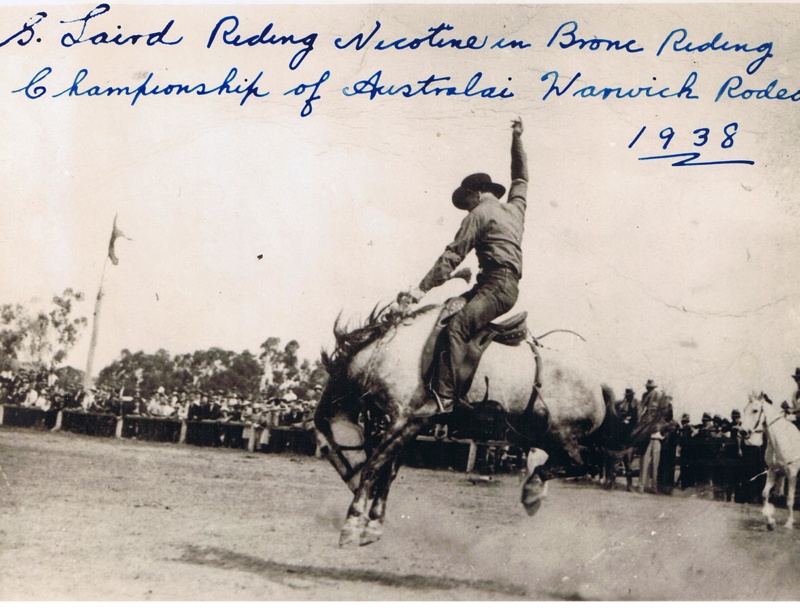 S. Laird Riding Nicotine in Bronc Riding
Championship of Australai Warwick Rodeo
1938